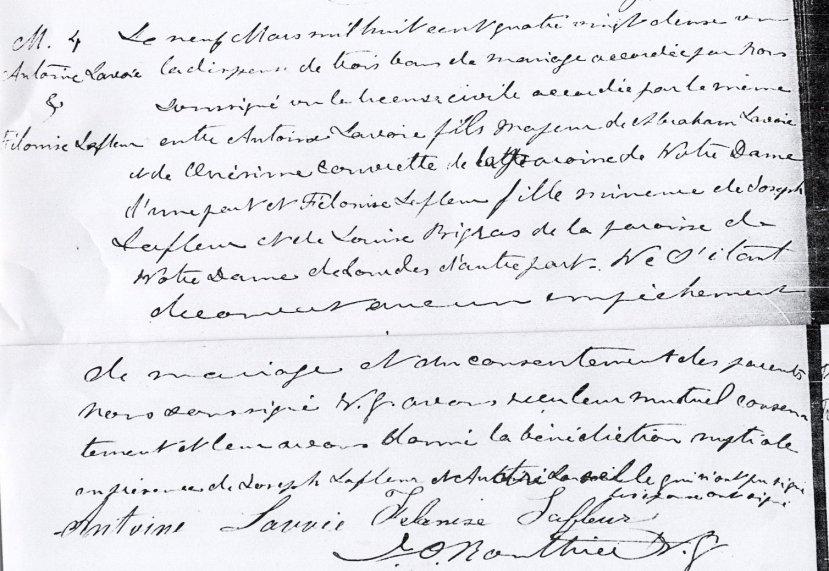 M. 4 Le neuf Mars mil huit cent quatre vingt douse vu
Antoine Lavoie la dispense de trois bans de mariage accordée par nous
& soussigné vu la license civile accordée par le même
Filonise Lafleur entre Antoine Lavoie fils majeur de Abraham Lavoie
et de Onésime de la Paroisse de Notre Dame
d'une part et Filonise Lafleur fille mineure de Joseph
Lafleur et de Louise Brigras de la paroisse de
Notre Dame de Lourdes d'autre part. Ne s'étant
découvert aucun empêchement
de mariage et du consentement des parents
nous soussigné V.G. avons reçu leur mutuel consen
tement et leur avons donné la bénédiction nuptiale
en présence de Joseph Lafleur et qui n'ont pu signé
les époux ont signé
Antoine Lavoie Felonise Lafleur
J. O. Routhier V.G